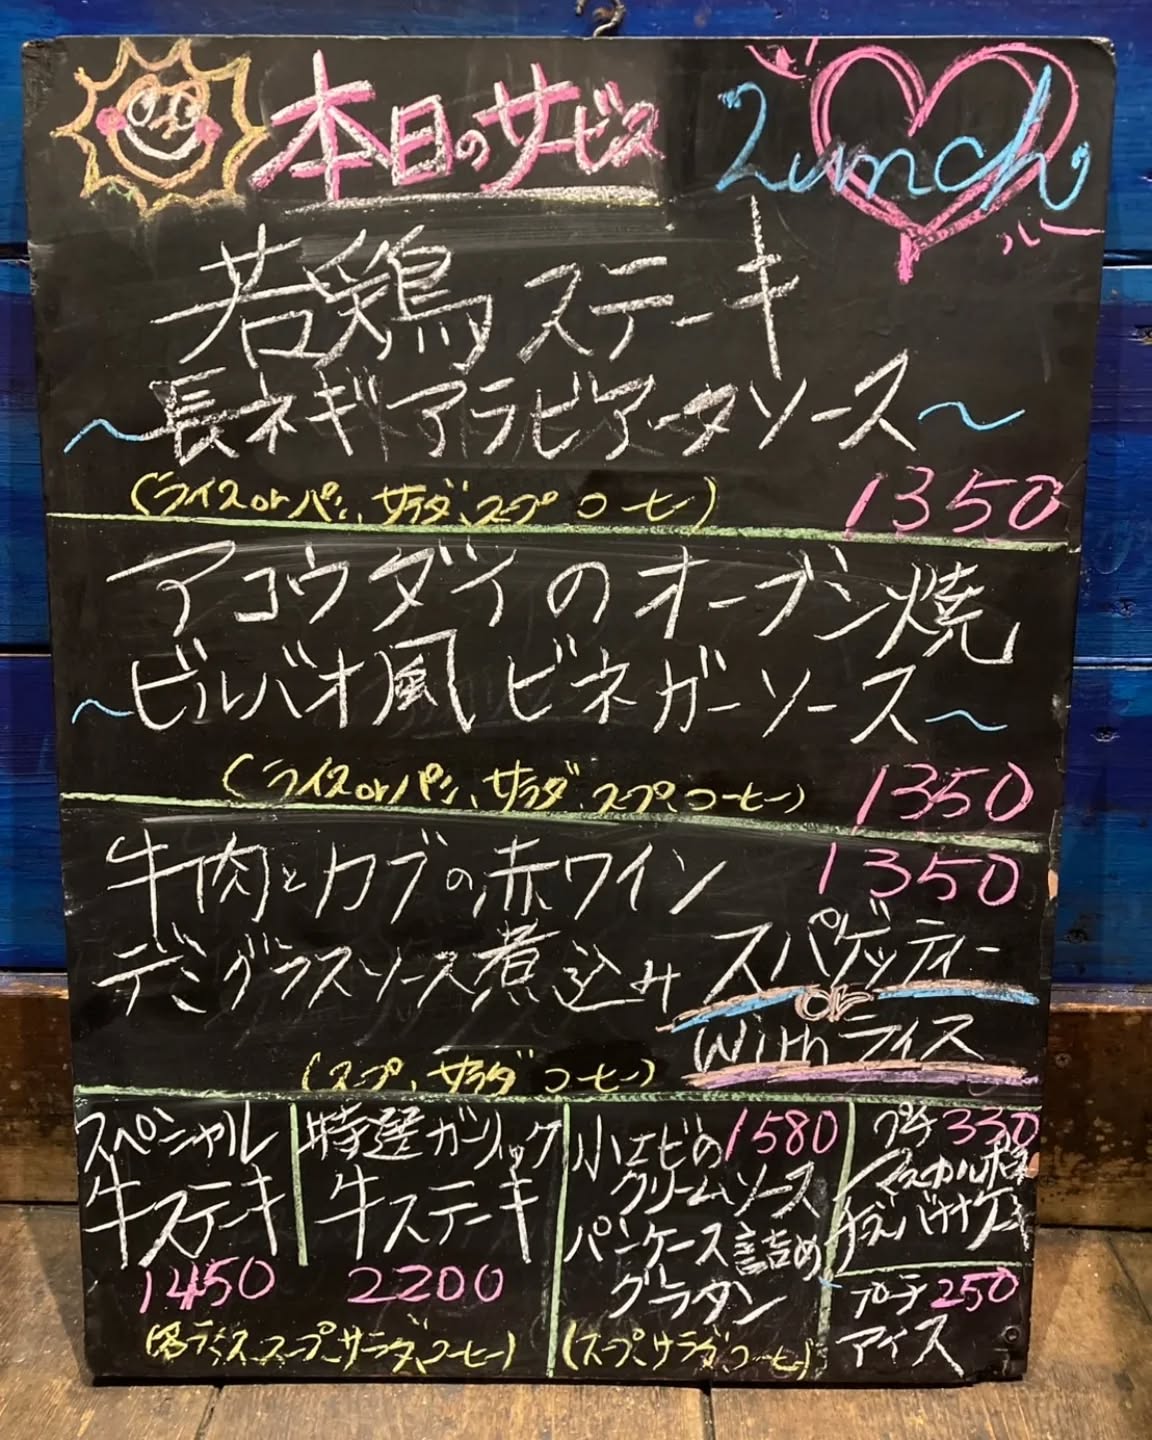 本日のサービス Lunch
若鶏ステーキ
~長ネギアラビアータソース~
(ライスorパン、サラダ、スープ コーヒー) 1350
アコウダイのオーブン焼
~ビルバオ風ビネガーソース~
(ライスorパン、サラダ、スープ、コーヒー) 1350
牛肉とカブの赤ワイン 1350
デミグラスソース煮込み スパゲッティー
or
With ライス
(スープ、サラダ コーヒー)
スペシャル
牛ステーキ
1450
特選ガーリック
牛ステーキ
2200
ライス、スープ、サラダ、コーヒー)
小エビの 1580
クリームソース
パンケース詰め
グラタン
(スープ、サラダ、コーヒー)
プチ 330
マスカルポーネ
チーズバナナケーキ
プチ 250
アイス